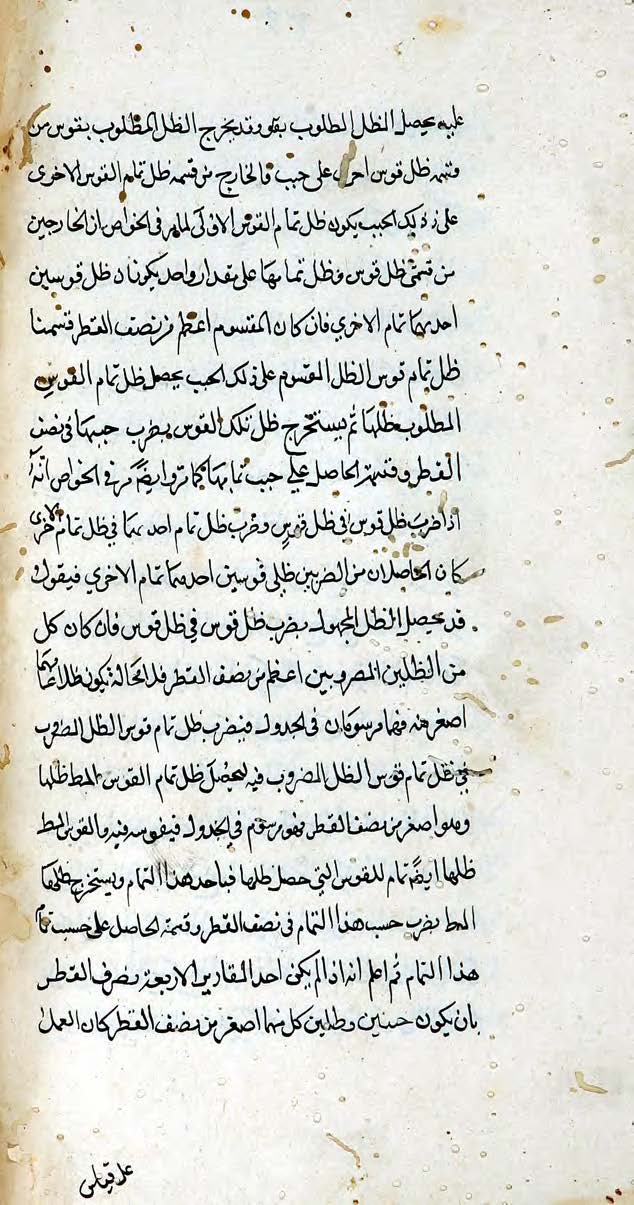 عليه يحصل الظل المطلوب بقو وقد يخرج الظل المطلوب بقوس من
قسمة ظل قوس اخرى على جيب فالخارج من قسمة ظل تمام القوس الاخرى
على ذلك الجيب يكون ظل تمام القوس الاولى لما مر فى الخواص ان الخارجين
من قسمتى ظل قوس وظل تمامها على مقدار واحد يكونان ظل قوسين
احديهما تمام الاخرى فان كان المقسوم اعظم من نصف القطر قسمنا
ظل تمام قوس الظل المقسوم على ذلك الجيب يحصل ظل تمام القوس
المطلوب ظلها ثم يستخرج ظل تلك القوس بضرب جيبها فى نصف
القطر وقسمة الحاصل على جيب تمامها كما مر وايضا مر فى الخواص انه
اذا ضرب ظل قوس فى ظل قوس وضرب ظل تمام احديهما فى ظل تمام الاخرى
كان الحاصلان من الضربين ظلى قوسين احديهما تمام الاخرى فيقول و
قد يحصل الظل المجهول بضرب ظل قوس فى ظل قوس فان كان كل
من الظلين المضروبين اعظم من نصف القطر فلا محالة يكون ظلا تماميهما
اصغر منه فهما مرسومان فى الجدول فيضرب ظل تمام قوس الظل المضروب
فى ظل تمام قوس الظل المضروب فيه ليحصل ظل تمام القوس المط ظلها
وهو اصغر من نصف القطر فهو مرسوم فى الجدول فيقوسه فيه والقوس المط
ظلها ايضا تمام للقوس التى حصل ظلها فياخذ هذا التمام ويستخرج ظلها
المط بضرب جيب هذا التمام فى نصف القطر وقسمة الحاصل على جيب تمام
هذا التمام ثم اعلم انه اذا لم يكن احد المقادير الاربعة نصف القطر
بان يكون جيبين وظلين كل منهما اصغر من نصف القطر كان العمل
على قياس